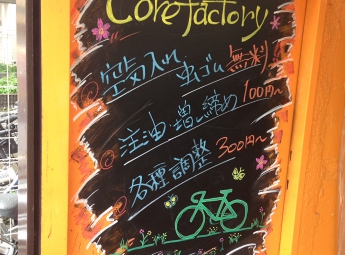 Core factory
空気入れ
虫ゴム 無料
注油・増し締め 100円〜
各種調整 300円〜